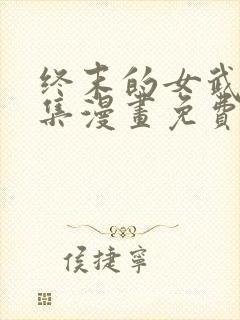 终末的女武
集漫畫免費
侯捷寧